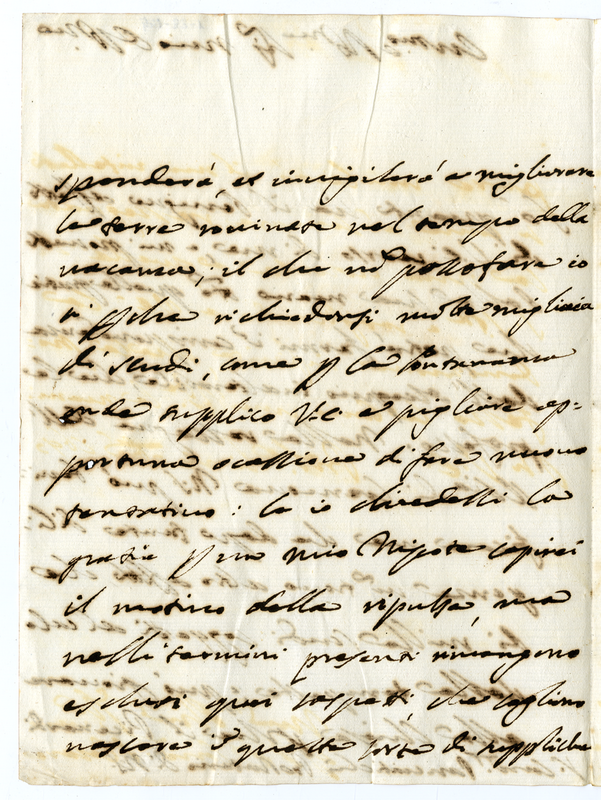 sponderà, et invigilerà a migliorare
le terre rovinate nel tempo della
vacanza, il che nõ posso fare io
sì p che richiedersi molte migliaia
di scudi, come p la lontananza
onde supplico V.E. a pigliare op=
portuna occassione di fare nuovo
tentativo: se io chiedessi la
grazia p un mio Nipote capirei
il motivo della ripulsa, ma
nelli termini presenti rimangono
esclusi quei rispetti, che sogliono
nascere quelle sorte di suppliche